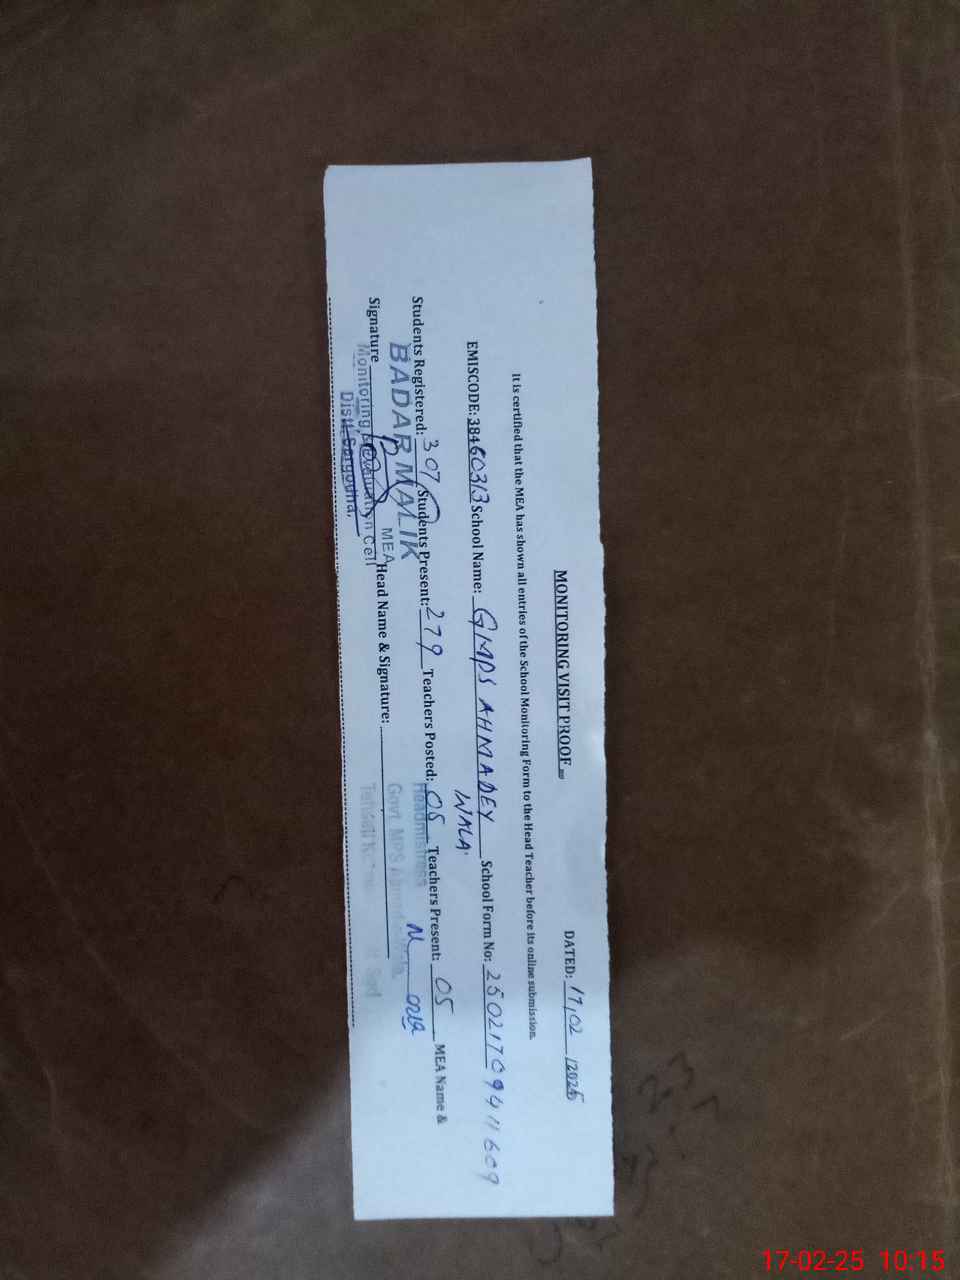 MONITORING VISIT PROOF
DATED: 17/02/2025
It is certified that the MEA has shown all entries of the School Monitoring Form to the Head Teacher before its online submission.
EMISCODE: 38460313 School Name: GMPS AHMADEY WALA School Form No: 25021709411609
Students Registered: 307 Students Present: 279 Teachers Posted: 05 Teachers Present: 05 MEA Name &
BADAR MALIK
MEA
Signature Head Name & Signature:
Monitoring & Evaluation Cell
Distt. Sargodha.
Headmistress
Govt. MPS
Tehsil
17-02-25 10:15